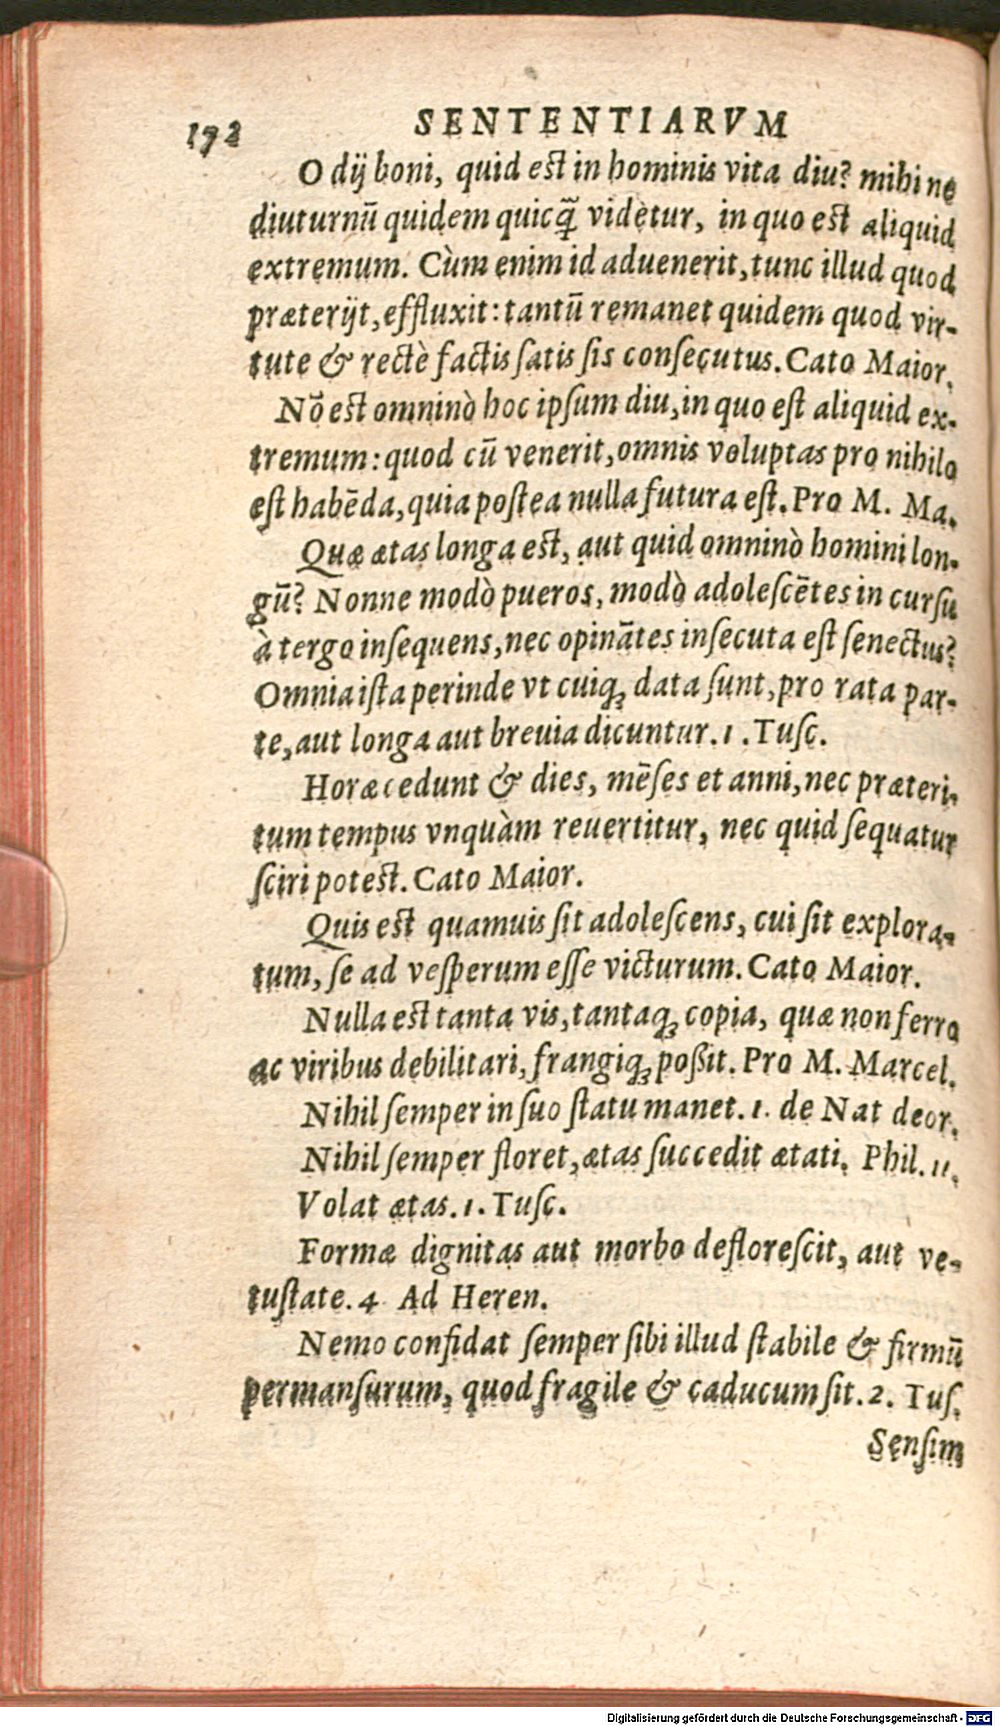 192 SENTENTIARVM
O dij boni, quid est in hominis vita diu? mihi ne
diuturnū quidem quicq̄ videtur, in quo est aliquid
extremum. Cùm enim id aduenerit, tunc illud quod
præterijt, effluxit: tantū remanet quidem quod vir-
tute & rectè factis ſatis ſis conſecutus. Cato Maior.
Nō est omninò hoc ipſum diu, in quo eſt aliquid ex-
tremum: quod cū venerit, omnis voluptas pro nihilo
eſt habēda, quia poſtea nulla futura eſt. Pro M. Ma.
Quæ ætas longa est, aut quid omninò homini lon-
gū? Nonne modò pueros, modò adoleſcētes in curſu
à tergo inſequens, nec opinātes inſecuta eſt ſenectus?
Omnia iſta perinde vt cuiq; data ſunt, pro rata par-
te, aut longa aut breuia dicuntur. 1. Tuſc.
Horæ cedunt & dies, mēſes et anni, nec præteri-
tum tempus vnquàm reuertitur, nec quid ſequatur
ſciri potest. Cato Maior.
Quis est quamuis ſit adoleſcens, cui ſit explora-
tum, ſe ad veſperum eſſe victurum. Cato Maior.
Nulla est tanta vis, tantaq; copia, quæ non ferro
ac viribus debilitari, frangiq; poßit. Pro M. Marcel.
Nihil ſemper in ſuo ſtatu manet. 1. de Nat deor.
Nihil ſemper floret, ætas ſuccedit ætati. Phil. 11.
Volat ætas. 1. Tuſc.
Formæ dignitas aut morbo defloreſcit, aut ve-
tuſtate. 4 Ad Heren.
Nemo confidat ſemper ſibi illud ſtabile & firmū
permanſurum, quod fragile & caducum ſit. 2. Tuſ.
Senſim
Digitalisierung gefördert durch die Deutsche Forschungsgemeinschaft - DFG